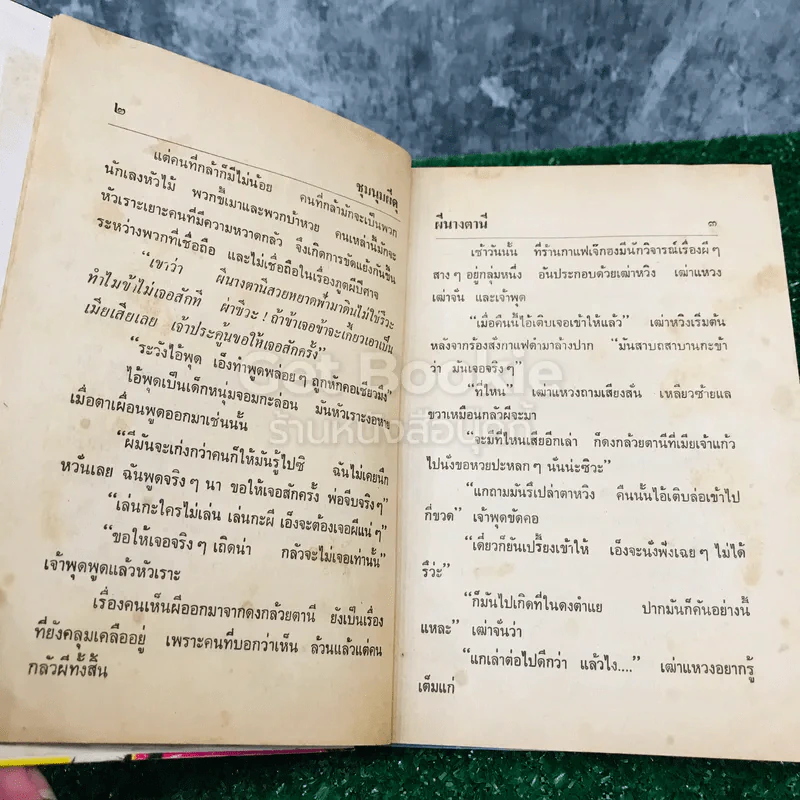 ๒
ชุมนุมผีดุ
แต่คนที่กล้าก็มีไม่น้อย คนที่กล้ามักจะเป็นพวก
นักเลงหัวไม้ พวกขี้เมาและพวกบ้าหวย คนเหล่านี้มักจะ
หัวเราะเยาะคนที่มีความหวาดกลัว จึงเกิดการขัดแย้งกันขึ้น
ระหว่างพวกที่เชื่อถือ และไม่เชื่อถือในเรื่องภูตผีปีศาจ
“เขาว่า ผีนางตานีสวยหยาดฟ้ามาดินไม่ใช่รึวะ
ทำไมข้าไม่เจอสักที ผ่าซีวะ! ถ้าข้าเจอข้าจะเกี้ยวเอาเป็น
เมียเสียเลย เจ้าประคู้นขอให้เจอสักครั้ง”
“ระวังไอ้พุด เอ็งทำพูดพล่อยๆ ถูกหักคอเชียวมึง”
ไอ้พุดเป็นเด็กหนุ่มจอมกะล่อน มันหัวเราะงอหาย
เมื่อตาเผื่อนพูดออกมาเช่นนั้น
“ผีมันจะเก่งกว่าคนก็ให้มันรู้ไปซิ ฉันไม่เคยนึก
หวั่นเลย ฉันพูดจริงๆ นา ขอให้เจอสักครั้ง พ่อจีบจริงๆ”
“เล่นกะใครไม่เล่น เล่นกะผี เอ็งจะต้องเจอผีแน่ๆ”
“ขอให้เจอจริงๆ เถิดน่า กลัวจะไม่เจอเท่านั้น”
เจ้าพุดพูดแล้วหัวเราะ
เรื่องคนเห็นผีออกมาจากดงกล้วยตานี ยังเป็นเรื่อง
ที่ยังคลุมเคลืออยู่ เพราะคนที่บอกว่าเห็น ล้วนแล้วแต่คน
กลัวผีทั้งสิ้น
ผีนางตานี
๓
เช้าวันนั้น ที่ร้านกาแฟเจ๊กฮงมีนักวิจารณ์เรื่องผีๆ
สางๆ อยู่กลุ่มหนึ่ง อันประกอบด้วยเฒ่าหวิง เฒ่าแหวง
เฒ่าจั่น และเจ้าพุด
“เมื่อคืนนี้ไอ้เติบเจอเข้าให้แล้ว” เฒ่าหวิงเริ่มต้น
หลังจากร้องสั่งกาแฟดำมาล้างปาก “มันสาบถสาบานกะข้า
ว่า มันเจอจริงๆ”
“ที่ไหน” เฒ่าแหวงถามเสียงสั่น เหลียวซ้ายแล
ขวาเหมือนกลัวผีจะมา
“จะมีที่ไหนเสียอีกเล่า ก็ดงกล้วยตานีที่เมียเจ้าแก้ว
ไปนั่งขอหวยปะหลกๆ นั่นน่ะซิวะ”
“แกถามมันรึเปล่าตาหวิง คืนนั้นไอ้เติบล่อเข้าไป
กี่ขวด” เจ้าพุดขัดคอ
“เดี๋ยวก็ยันเปรี้ยงเข้าให้ เอ็งจะนั่งฟังเฉยๆ ไม่ได้
รึว่ะ”
“ก็มันไปเกิดที่ในดงตำแย ปากมันก็คันอย่างนี้
แหล่ะ” เฒ่าจั่นว่า
“แกเล่าต่อไปดีกว่า แล้วไง....” เฒ่าแหวงอยากรู้
เต็มแก่
Got Bookie